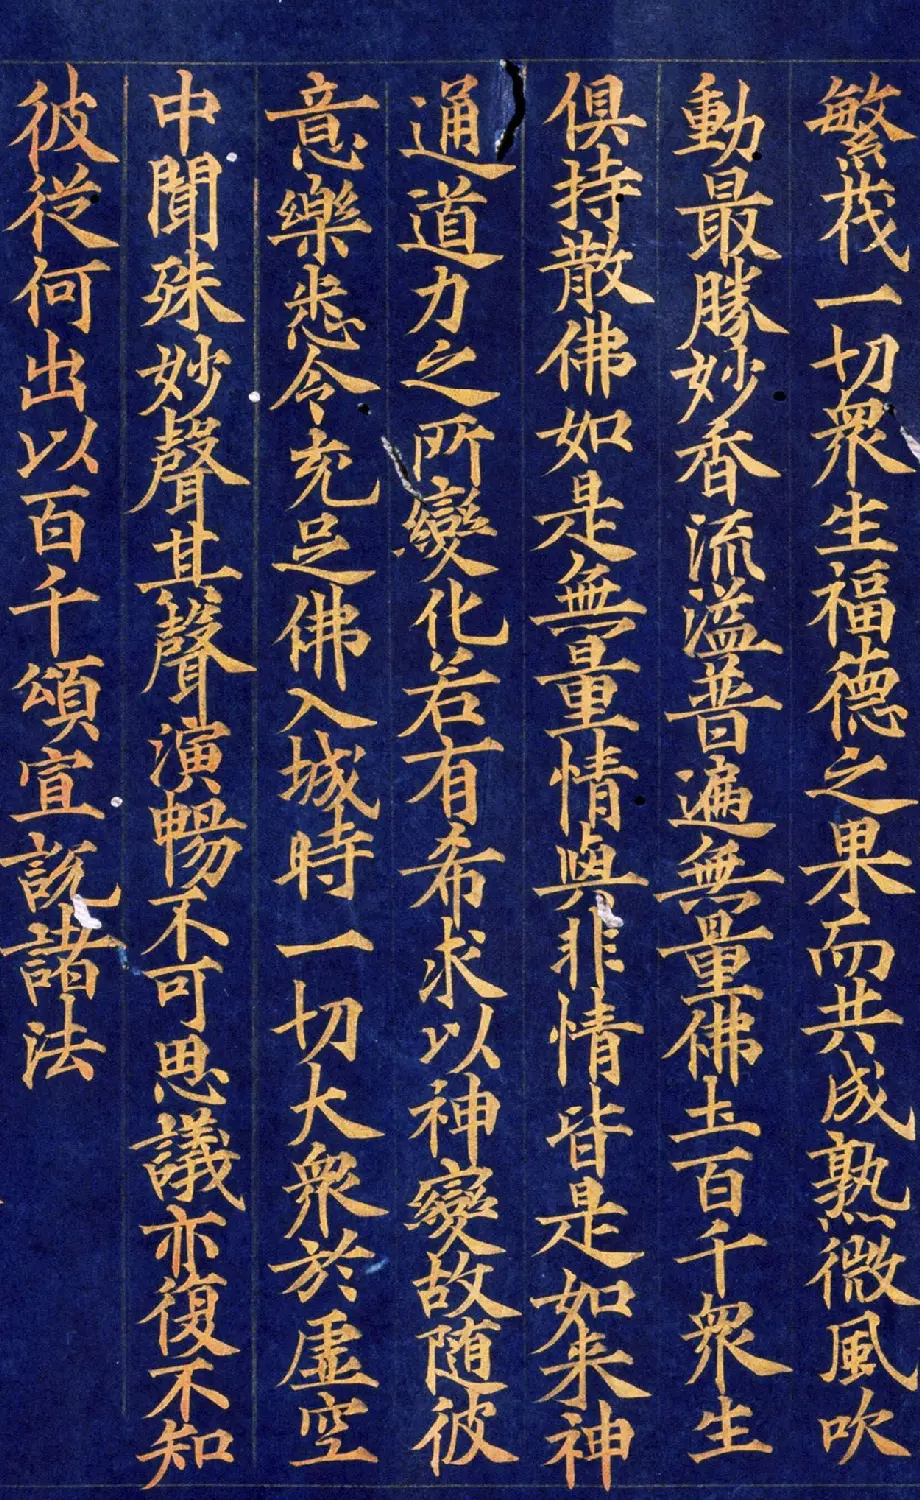 繁茂一切衆生福德之果而共成熟微風吹
動最勝妙香流溢普遍無量佛土百千衆生
俱持散佛如是無量情與非情皆是如来神
通道力之所變化若有希求以神變故随彼
意樂悉令充足佛入城時一切大衆於虛空
中聞殊妙聲其聲演暢不可思議亦復不知
彼從何出以百千頌宣説諸法